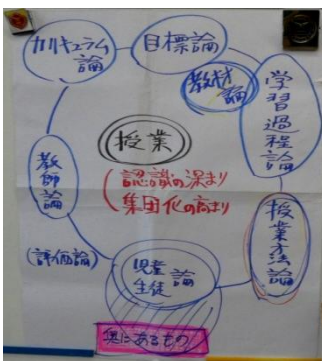 カリキュラム
論
目標論
教材
論
学習過程論
授業
認識の深まり
集団化の高まり
教師論
授業方法論
(評価論)
児童
生徒
論
奥にあるもの